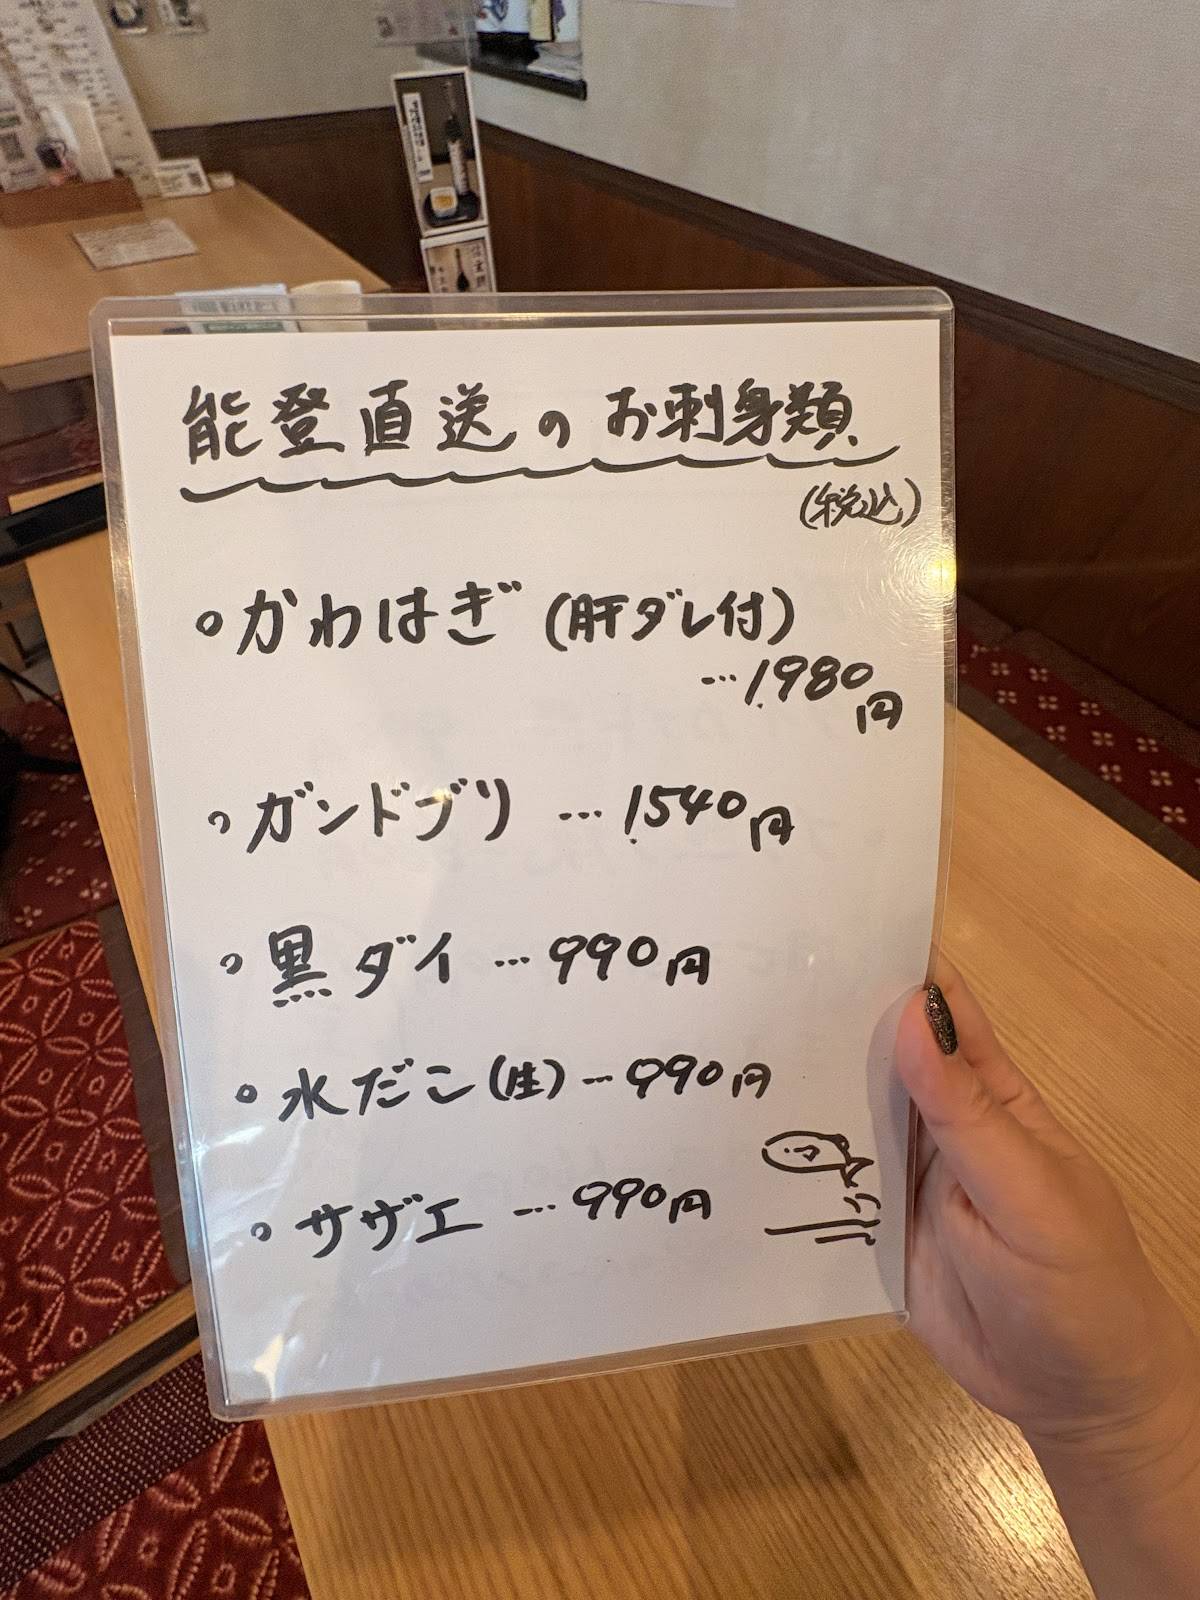 能登直送のお刺身類
(税込)
◦かわはぎ(肝ダレ付)
…1,980円
◦ガンドブリ…1,540円
◦黒ダイ…990円
◦水だこ(生)…990円
◦サザエ…990円